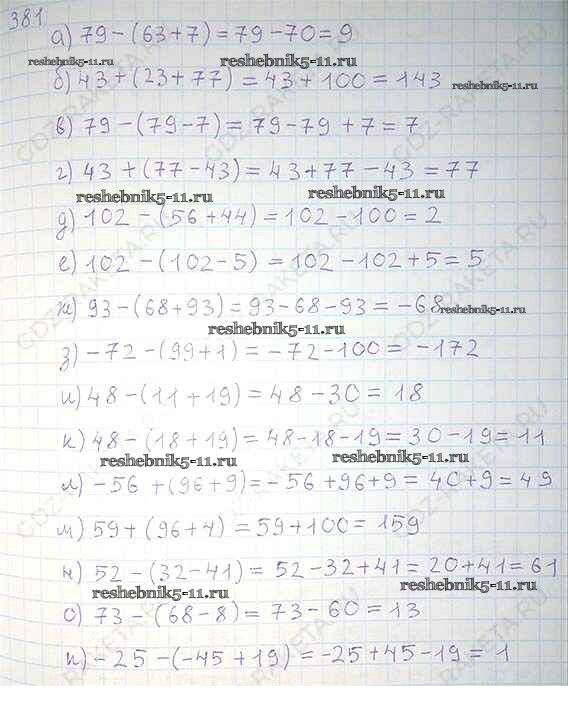 381.
а) 79 - (63 + 7) = 79 - 70 = 9
reshebnik5-11.ru reshebnik5-11.ru
б) 43 + (23 + 77) = 43 + 100 = 143 reshebnik5-11.ru
в) 79 - (79 - 7) = 79 - 79 + 7 = 7
г) 43 + (77 - 43) = 43 + 77 - 43 = 77
reshebnik5-11.ru reshebnik5-11.ru
д) 102 - (56 + 44) = 102 - 100 = 2
е) 102 - (102 - 5) = 102 - 102 + 5 = 5
ж) 93 - (68 + 93) = 93 - 68 - 93 = -68 reshebnik5-11.ru
reshebnik5-11.ru
з) -72 - (99 + 1) = -72 - 100 = -172
и) 48 - (11 + 19) = 48 - 30 = 18
к) 48 - (18 + 19) = 48 - 18 - 19 = 30 - 19 = 11
reshebnik5-11.ru reshebnik5-11.ru
л) -56 + (96 + 9) = -56 + 96 + 9 = 40 + 9 = 49
м) 59 + (96 + 4) = 59 + 100 = 159
н) 52 - (32 - 41) = 52 - 32 + 41 = 20 + 41 = 61
reshebnik5-11.ru reshebnik5-11.ru
о) 73 - (68 - 8) = 73 - 60 = 13
п) -25 - (-45 + 19) = -25 + 45 - 19 = 1